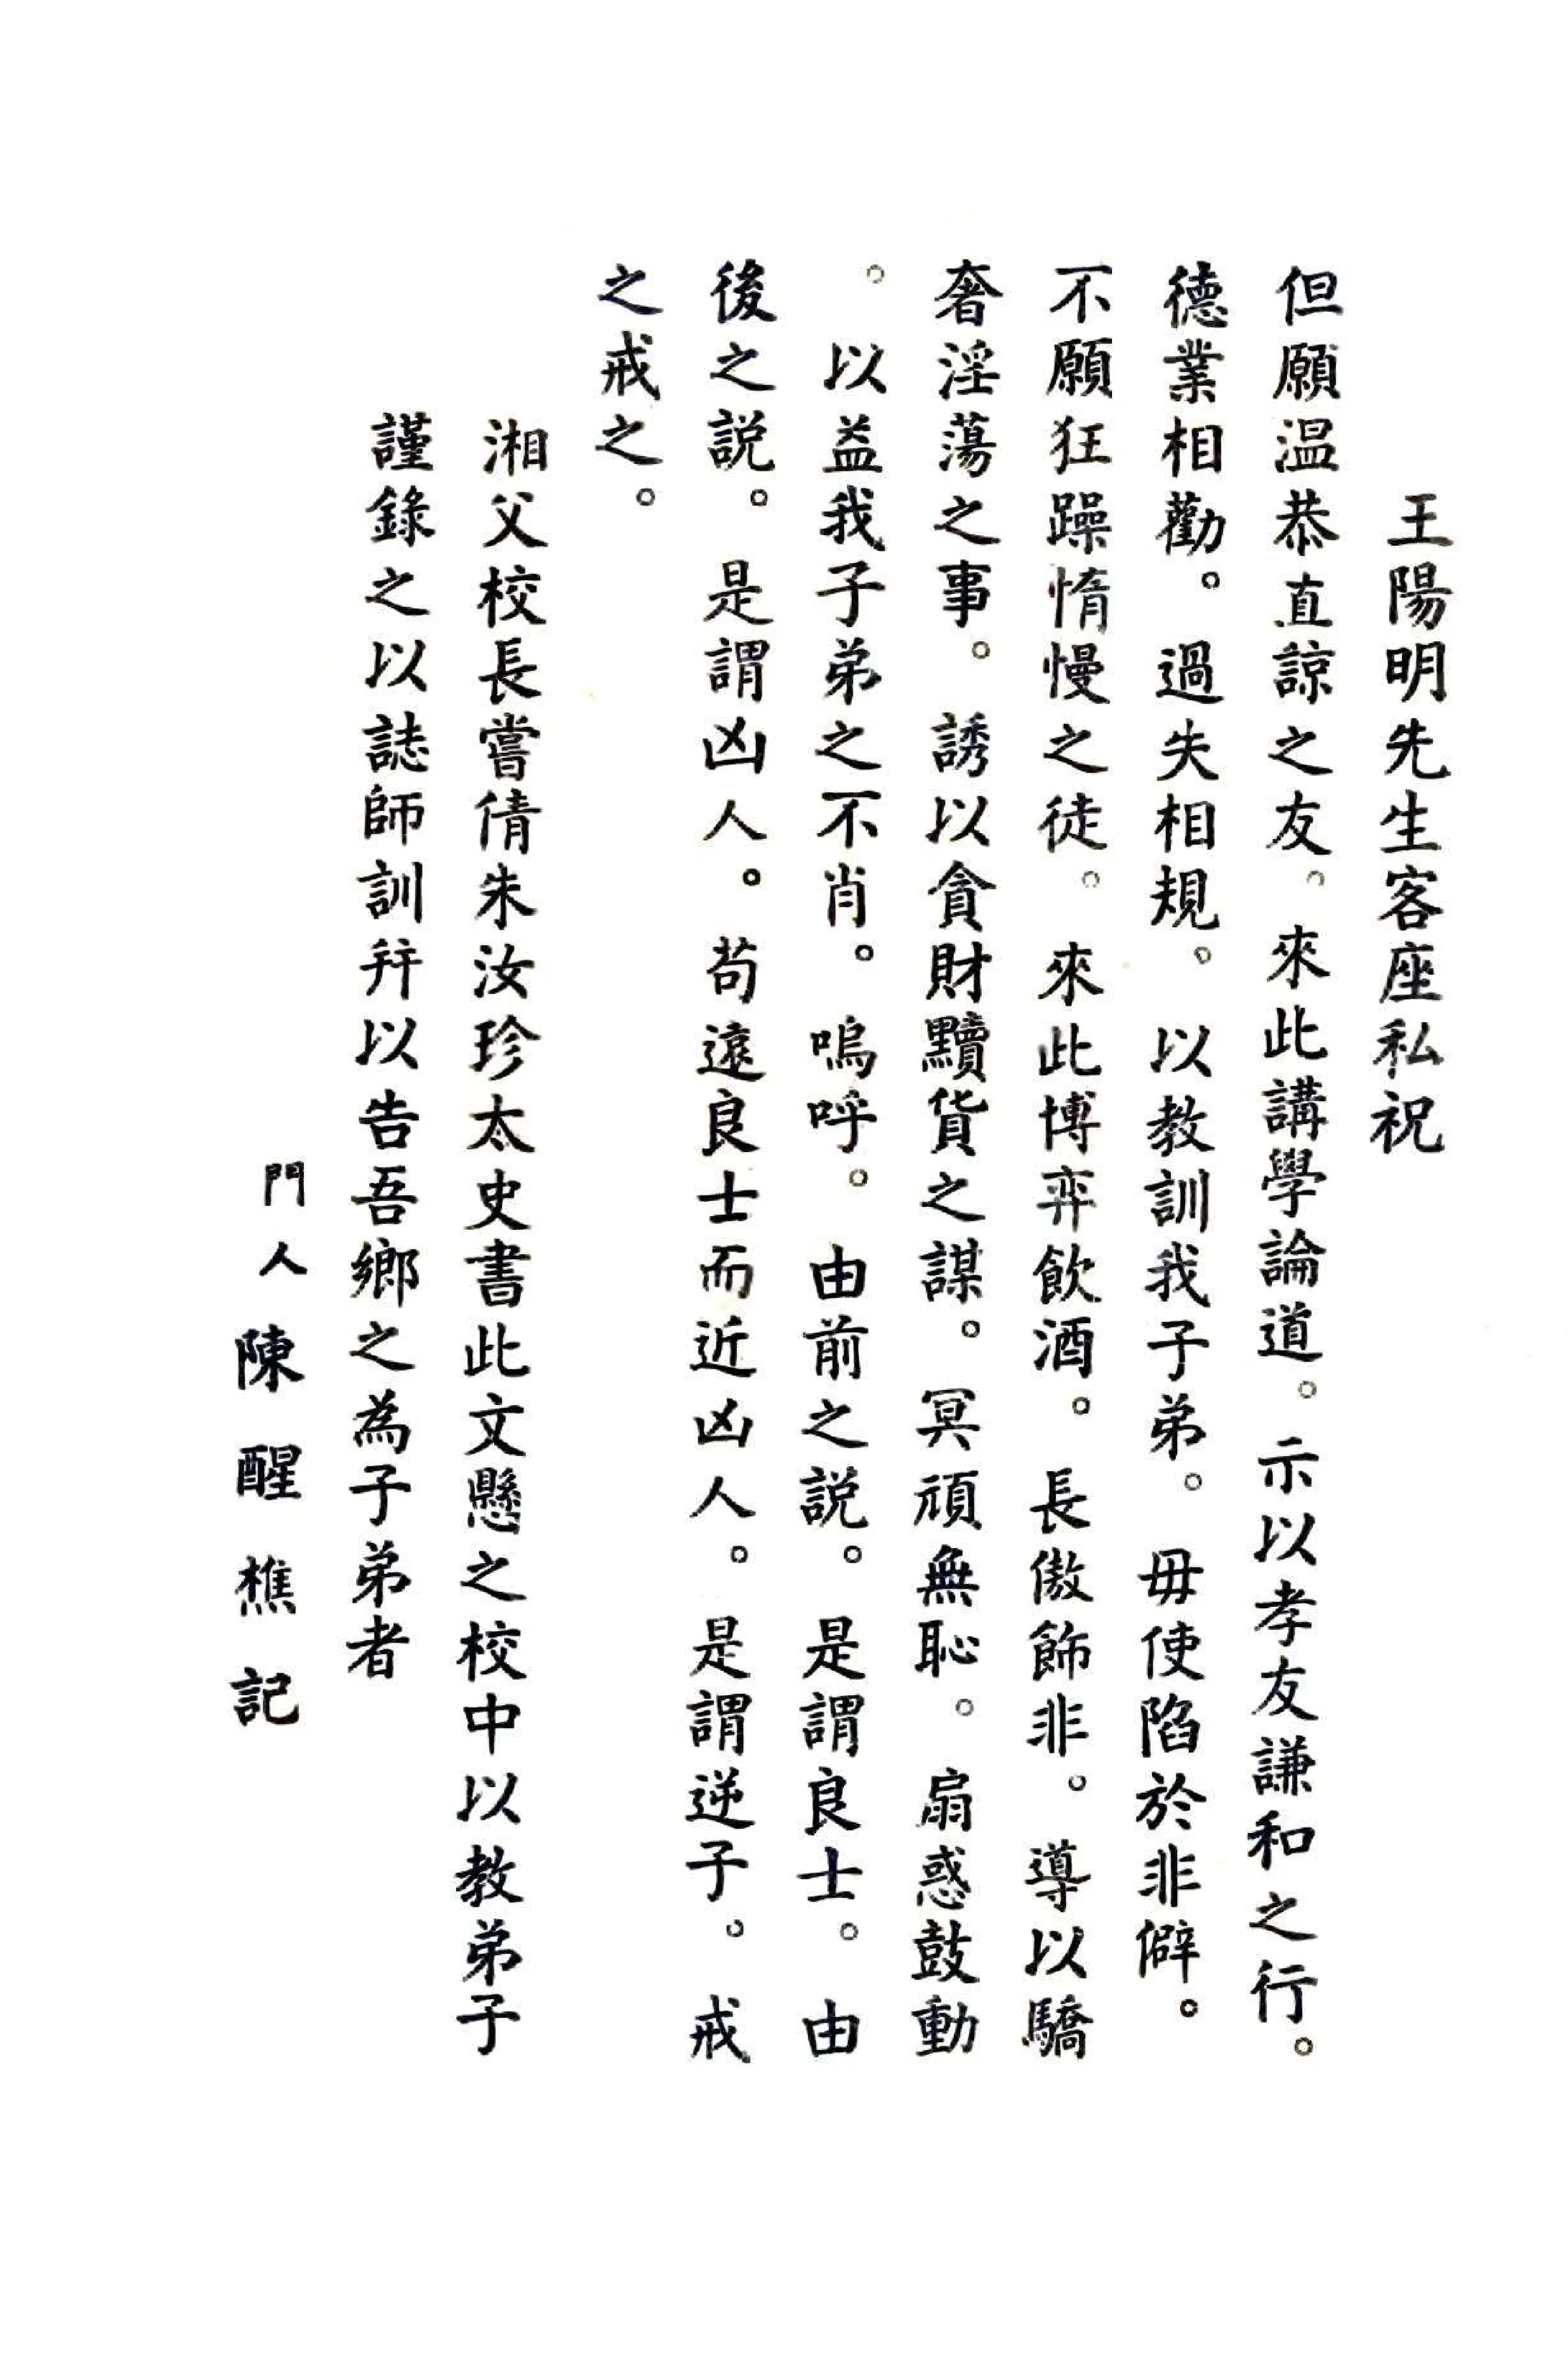 王陽明先生客座私祝
但願温恭直諒之友。來此講學論道。示以孝友謙和之行。
德業相勸。過失相規。以教訓我子弟。毋使陷於非僻。
不願狂躁惰慢之徒。來此博弈飲酒。長傲飾非。導以驕
奢淫蕩之事。誘以貪財黷貨之謀。冥頑無恥。扇惑鼓動
。以益我子弟之不肖。嗚呼。由前之説。是謂良士。由
後之説。是謂凶人。苟遠良士而近凶人。是謂逆子。戒
之戒之。
湘父校長嘗倩朱汝珍太史書此文懸之校中以教弟子
謹錄之以誌師訓幷以告吾鄉之為子弟者
門人陳醒樵記